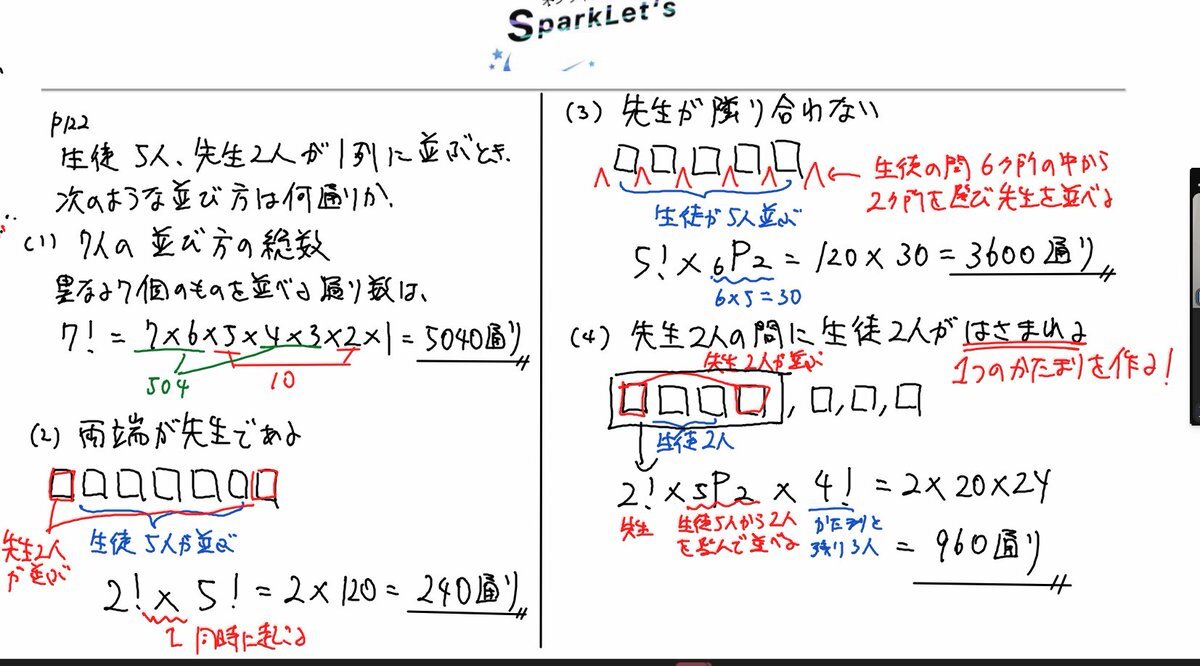 SparkLet's
P122
生徒5人、先生2人が1列に並ぶとき、
次のような並び方は何通りか。
(1) 7人の並び方の総数
異なる7個のものを並べる通り数は、
7! = 7×6×5×4×3×2×1 = 5040通り
504
10
(2) 両端が先生である
先生2人
が並ぶ
生徒5人が並ぶ
2! × 5! = 2×120 = 240通り
同時に起こる
(3) 先生が隣り合わない
生徒の間6ヶ所の中から
2ヶ所を選び先生を並べる
生徒が5人並ぶ
5! × 6P2 = 120 × 30 = 3600通り
6×5=30
(4) 先生2人の間に生徒2人がはさまれる
先生2人が並ぶ
1つのかたまりを作る!
生徒2人
2! × 5P2 × 4! = 2×20×24
先生
生徒5人から2人
を選んで並べる
かたまりと
残り3人
= 960通り